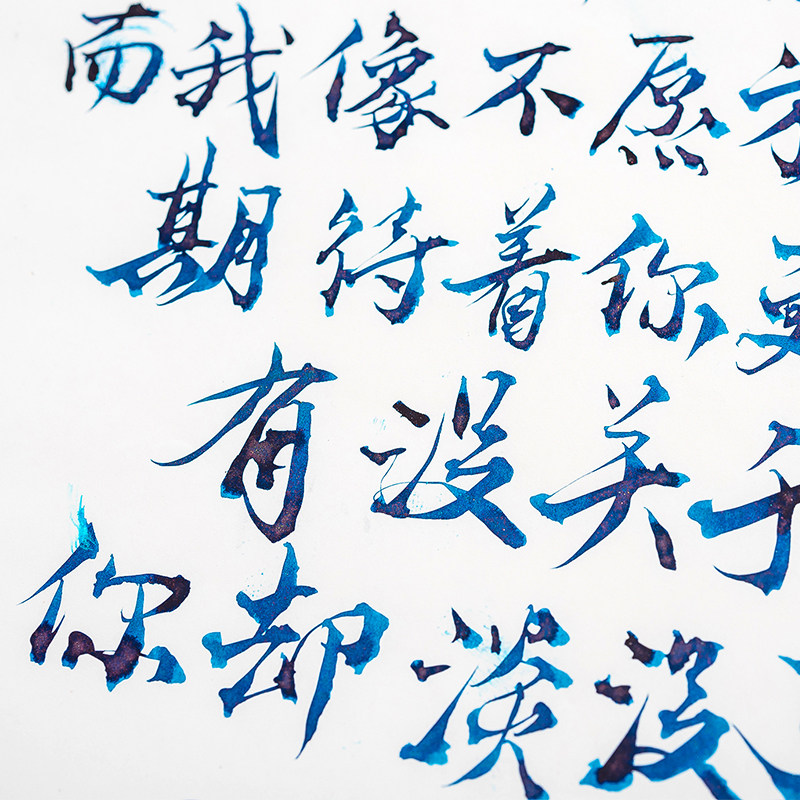 而我像不愿
期待着你
有没关
你却淡没